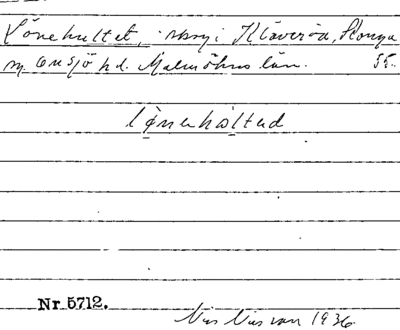 Lönehultet, skog i Klåveröd, Stenga
sn. Onsjö hd. Malmöhus län. 55.
lønehåltəd
Nr 5712.
Nils Nilsson 1936